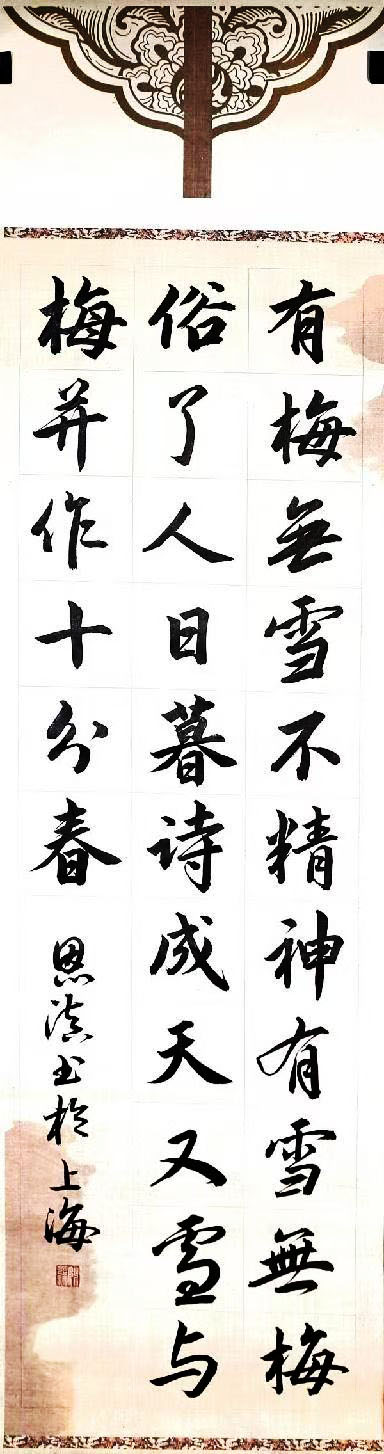 有梅無雪不精神有雪無梅
俗了人日暮诗成天又雪与
梅并作十分春
恩滨书於上海